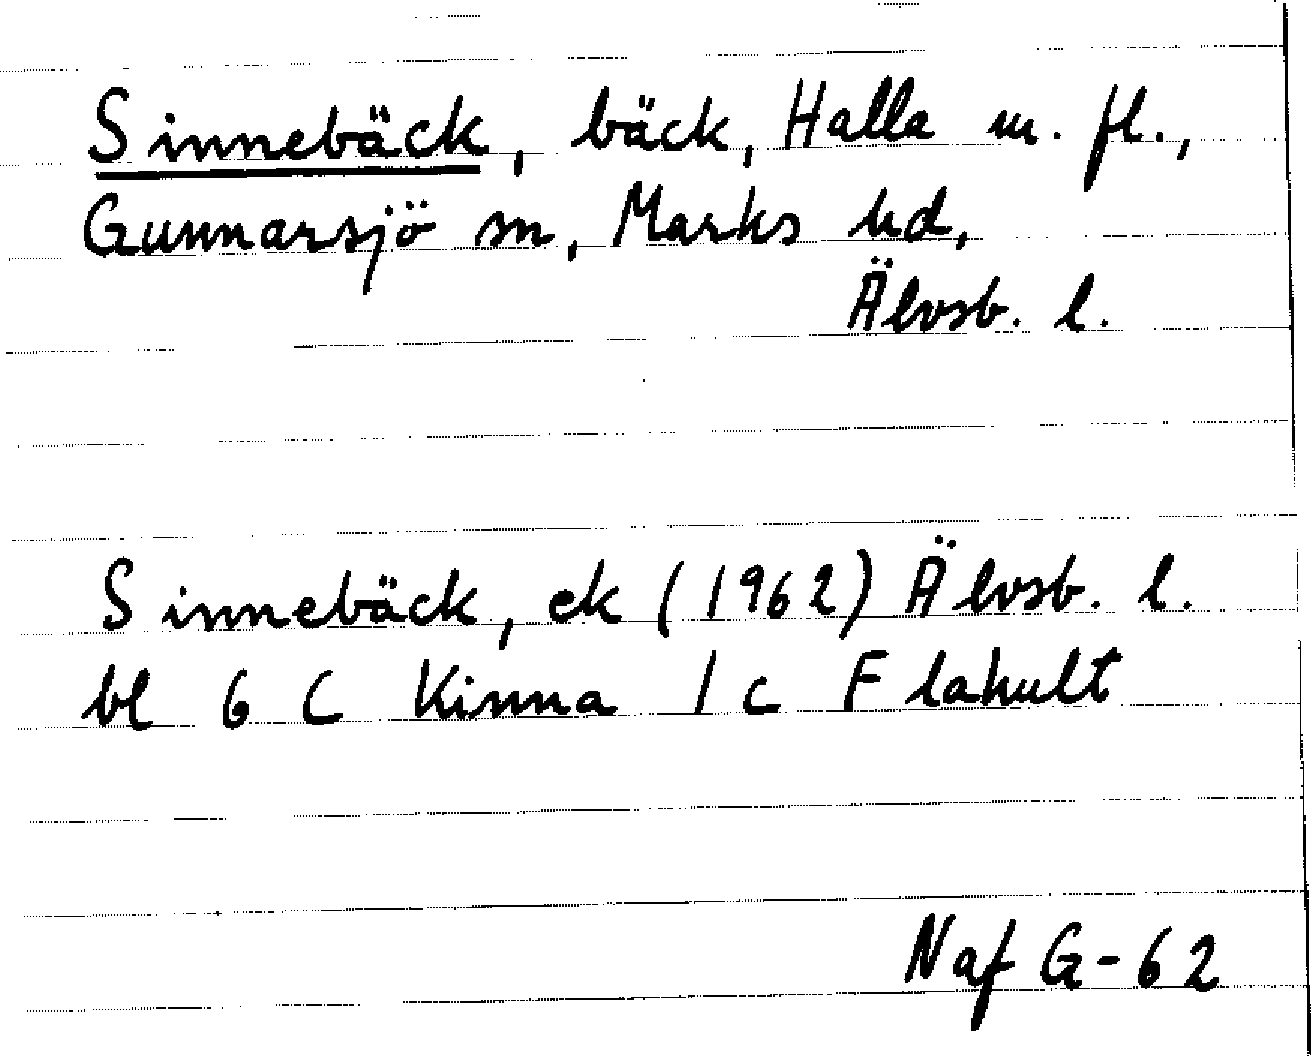 Sinnebäck, bäck, Halla m. fl.,
Gunnarsjö sn, Marks hd,
Älvsb. l.
Sinnebäck, ek (1962) Älvsb. l.
bl 6 C Kinna 1 c Flahult
Naf G-62